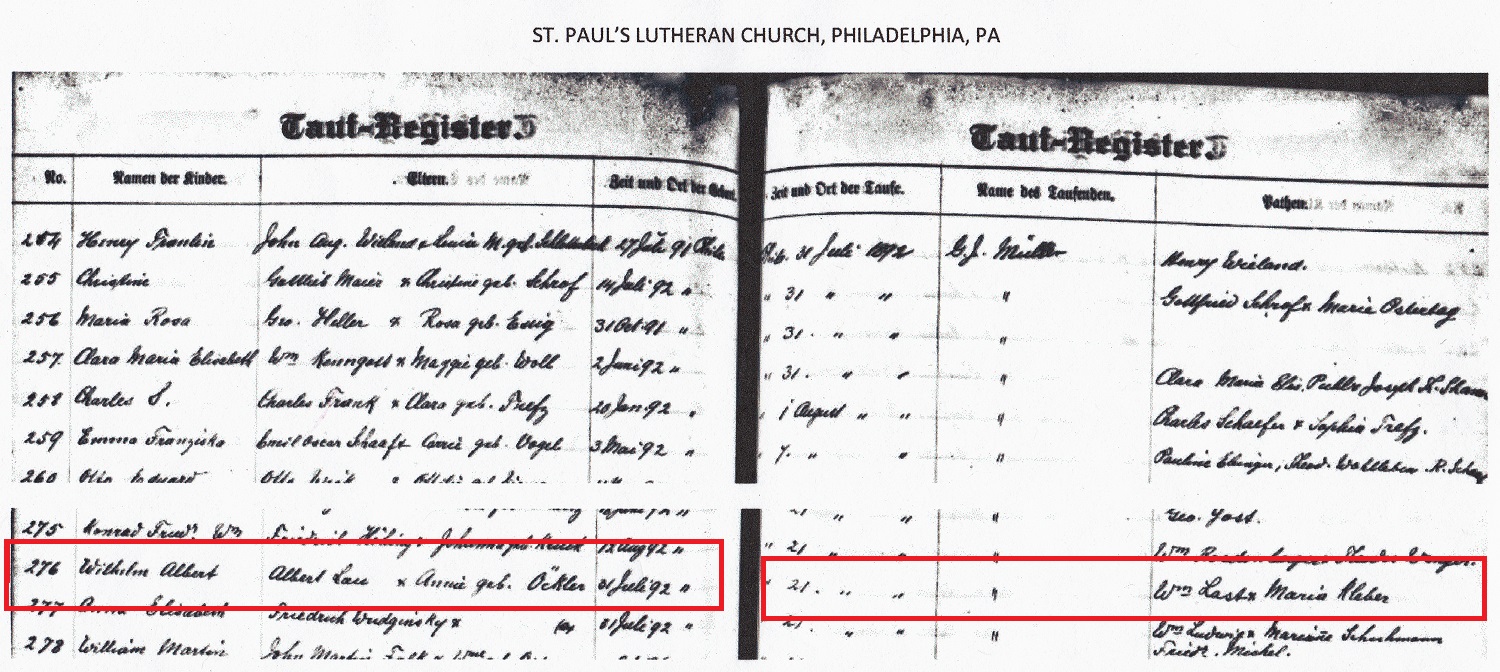 ST. PAUL'S LUTHERAN CHURCH, PHILADELPHIA, PA
Tauf-Register
Tauf-Register
No. Namen der Kinder. Eltern. Zeit und Ort der Geburt. Zeit und Ort der Taufe. Name des Taufenden. Pathen.
254 Henry John Aug. M. geb. 27 Juli 91 Phila 31 Juli 1892 G. J. Müller Henry Wieland.
255 Christine Gottlieb Maier & Christine geb. Schrof 14 Juli 92 " " 31 " " " Gottfried Schrof & Marie Ostertag
256 Maria Rosa Geo. Heller & Rosa geb. Essig 31 Oct. 91 " " 31. " " "
257. Clara Maria Elisabeth Wm Kenngott & Maggie geb. Woll 2 Juni 92 " " 31. " " " Clara Maria Elis. Joseph K.
258 Charles S. Charles Frank & Clara geb. Trefz 20 Jan. 92 " " 1 August " " " Charles Schaefer & Sophia Trefz.
259 Emma Franziska Emil Oscar Schaaf & Carrie geb. Vogel 3 Mai 92 " " 7. " " " Pauline Ebinger, Theod. Wohlleben
260 Otto
" 21 " " " Geo. Jost.
275 Konrad Friedr. Wm Friedrich & Johanna geb. 12 Aug 92 " " 21 " " " Wm
276 Wilhelm Albert Albert Lau & Annie geb. Öckler 31 Juli 92 " " 21. " " " Wm Last & Maria Kleber
277 Anna Elisabeth Friedrich & 31 Juli 92 " 21. " " " Wm Ludwig & Schuhmann
278 William Martin John Martin Friedr. Michel.